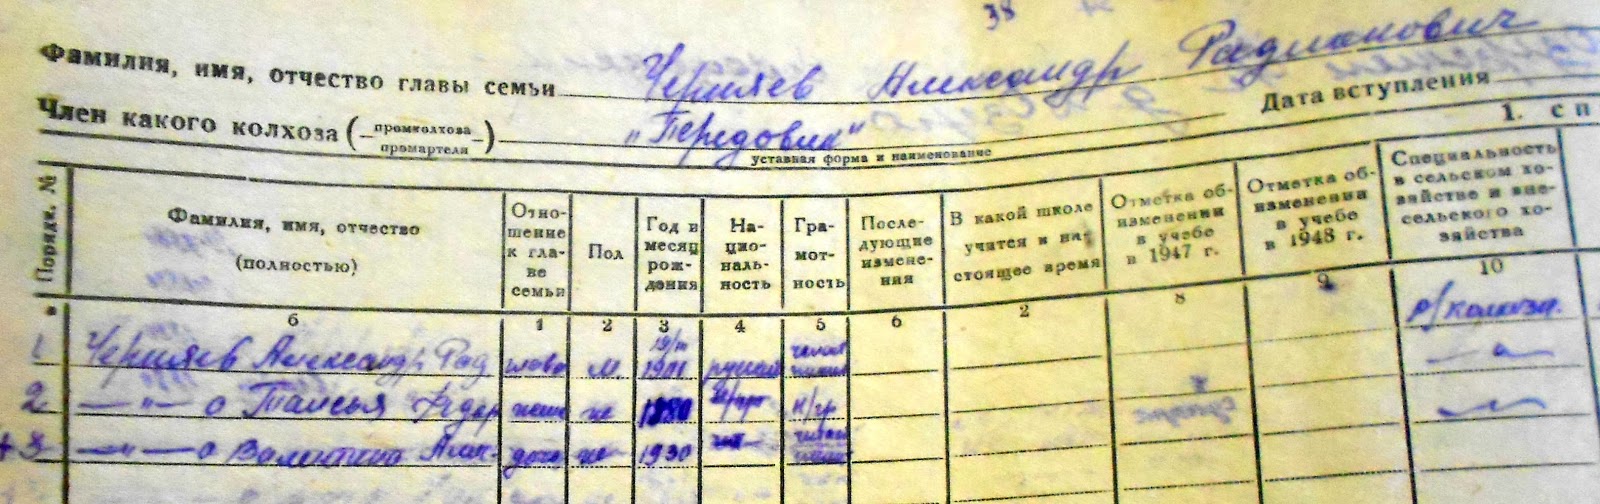 38
Фамилия, имя, отчество главы семьи Черняев Александр Радианович
Член какого колхоза (промколхоза / промартели) „Передовик“ Дата вступления
уставная форма и наименование
1. СП
Порядк. № Фамилия, имя, отчество (полностью) Отношение к главе семьи Пол Год и месяц рождения Национальность Грамотность Последующие изменения В какой школе учатся в настоящее время Отметка об изменении в учебе в 1947 г. Отметка об изменении в учебе в 1948 г. Специальность в сельском хозяйстве и вне сельского хозяйства
а б 1 2 3 4 5 6 2 8 9 10
1 Черняев Александр Рад глава м. 1901 русский р/колхозн.
2 —„— а Таисья Федор жена же 1880 н/гр
+ 3 —„— а Валентина Алек- дочь же 1930